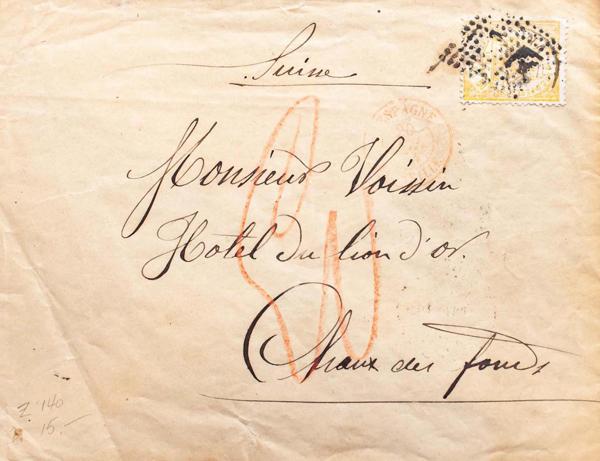 Suisse
ESPAGNE
Monsieur Voissin
Hotel du lion d'or.
Chaux des fonds
Z. 140
15.-